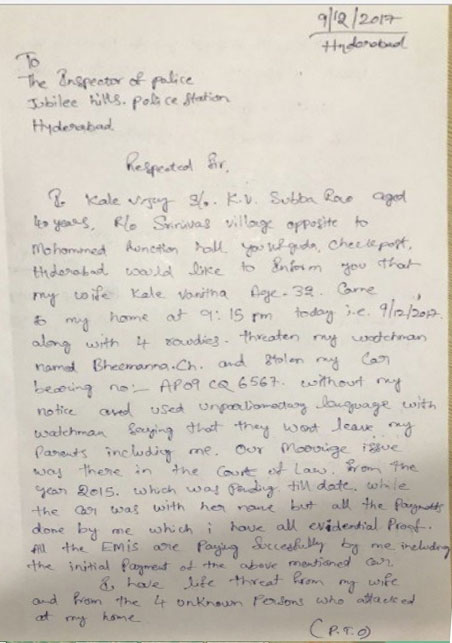 9/12/2017
Hyderabad
To
The Inspector of police
Jubilee hills. police station
Hyderabad
Respected Sir,
I, Kale Vijay S/o. K.V. Subba Rao aged
40 years, R/o Srinivas village opposite to
Mohammed function hall yousufguda, checkpost,
Hyderabad would like to Inform you that
my wife Kale Vanitha Age. 32. Came
to my home at 9:15 pm today i.e. 9/12/2017.
along with 4 rowdies. threaten my watchman
named Bheemanna.Ch. and stolen my Car
bearing no:- AP09 CQ 6567. without my
notice and used unparliamentary language with
watchman saying that they wont leave my
Parents including me. Our Marriage issue
was there in the Court of Law. from the
year 2015. which was Pending till date. while
the Car was with her name but all the Payments
done by me which i have all evidential Proof.
all the EMIs are Paying Succesfully by me including
the initial Payment of the above mentioned car.
I, have life threat from my wife
and from the 4 unknown Persons who attacked
at my home
(P.T.O)